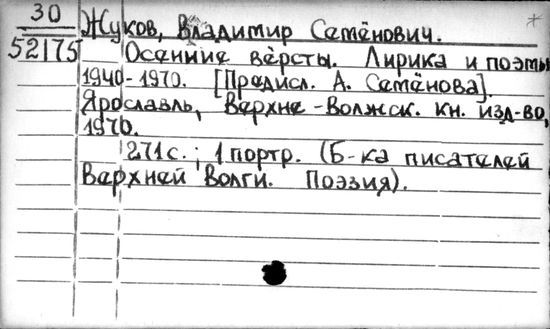 30
52175
Жуков, Владимир Семёнович.
Осенние вёрсты. Лирика и поэмы
1940-1970. [Предисл. А. Семёнова].
Ярославль, Верхне-Волжск. кн. изд-во,
1970.
271с.; 1 портр. (Б-ка писателей
Верхней Волги. Поэзия).